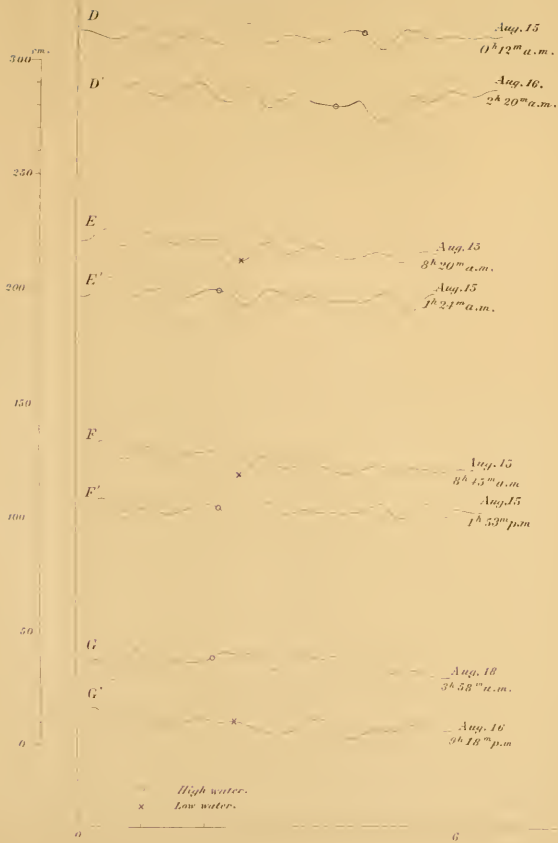 D
Aug. 15
0h 12m a.m.
cm.
300
D'
Aug. 16.
2h 20m a.m.
250
E
Aug. 15
8h 20m a.m.
E'
200
Aug. 15
1h 24m a.m.
150
F
Aug. 15
8h 45m a.m
F'
Aug. 15
100
1h 53m p.m
50
G
Aug. 18
3h 58m a.m.
G'
Aug. 16
0
9h 18m p.m
High water.
× Low water.
0 6